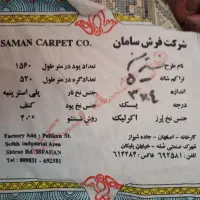 SAMAN CARPET CO.
شرکت فرش سامان
نام طرح
تراکم شانه ۵۲۰
اندازه ۳×۴
درجه یک
جنس نخ پرز اکرلیک
تعداد پود در متر طول ۱۵۶۰
تعدادگره در متر طول ۵۲۰
جنس نخ تار پلی استر پنبه
جنس نخ پود کنف
روش شستشو
کارخانه = اصفهان - جاده شیراز
شهرک صنعتی سفته - خیابان پلیکان
تلفن ۶۹۲۵۸۱
Factory Add : Pelikan St.
Sofeh Industrial Area
Shiraz Rd. ISFAHAN
Tel : 009831 - 692581